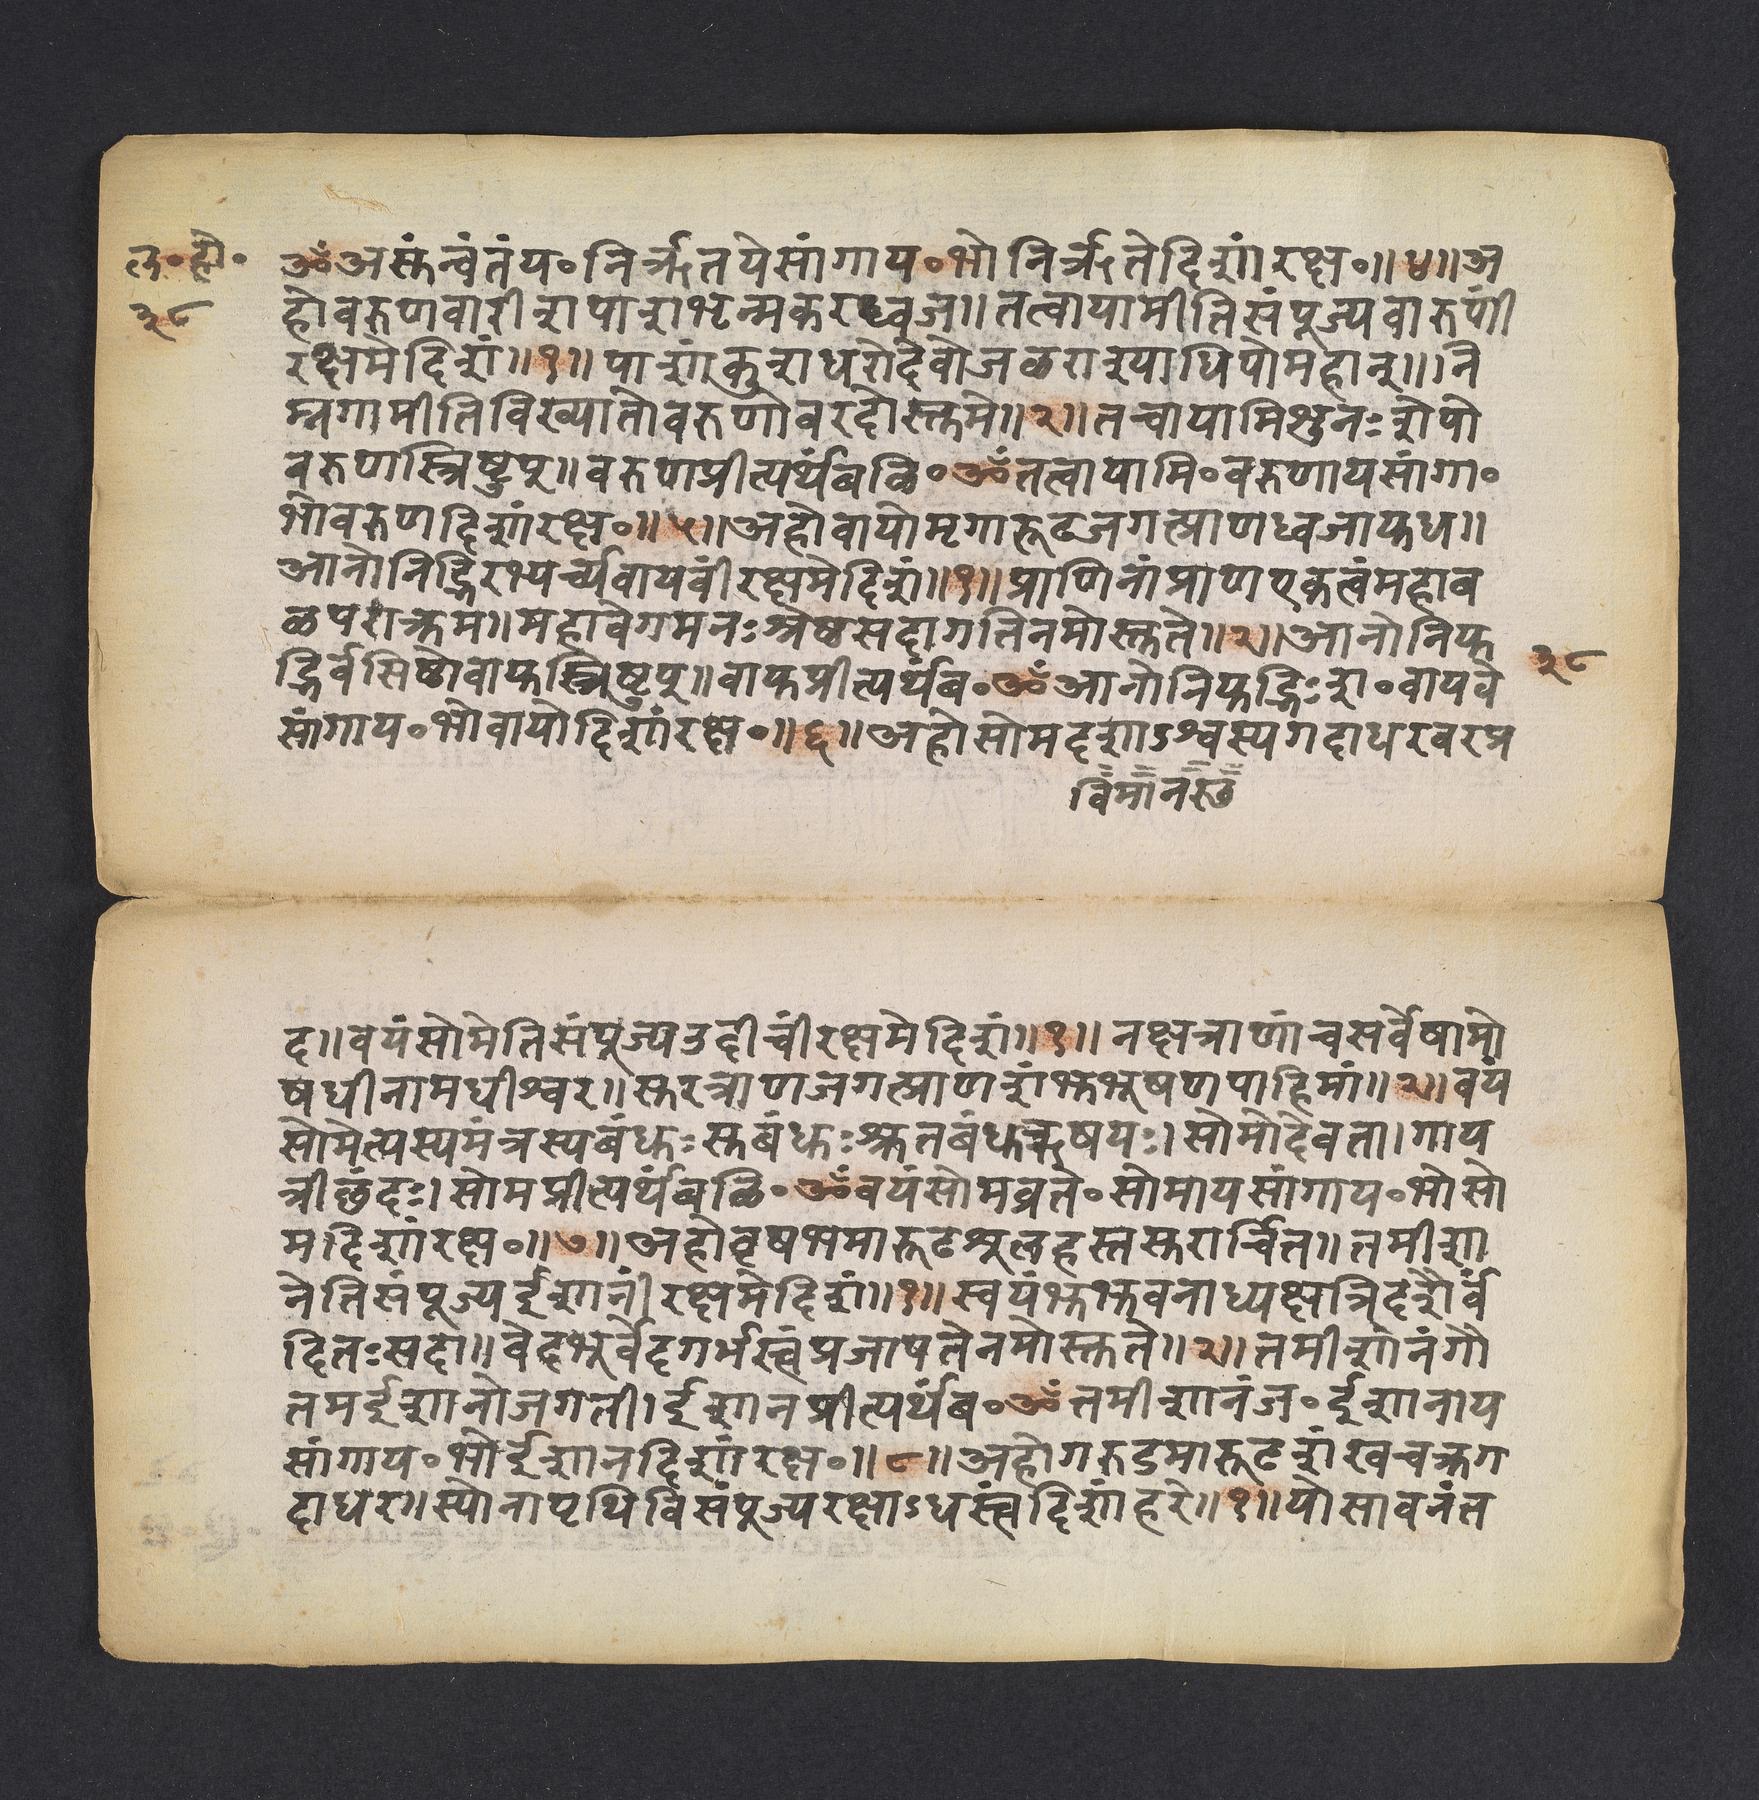 ल॰ हो॰
३८
ॐअसुंन्वंतंय॰निर्ऋतयेसांगाय॰भोनिर्ऋतेदिशांरक्ष॰॥४॥अ
होवरुणवारीशपाशभृन्मकरध्वज॥तत्वायामीतिसंपूज्यवारुणीं
रक्षमेदिशं॥१॥पाशांकुशधरोदेवोजळराश्याधिपोमहान्॥नि
म्नगामीतिविख्यातोवरुणोवरदोस्तुमे॥२॥तत्वायामिशुनःशेपो
वरुणस्त्रिष्टुप्॥वरुणप्रीत्यर्थंबळिं॰ॐतत्वायामि॰वरुणायसांगा॰
भोवरुणदिशांरक्ष॰॥५॥अहोवायोमृगारूढजगत्प्राणध्वजायुध॥
आनोनिद्भिरभ्यर्च्यवायवीं रक्षमेदिशं॥१॥प्राणिनांप्राणएकत्वंमहाब
ळपराक्रम॥महावेगमनःश्रेष्ठसदागतिनमोस्तुते॥२॥आनोनियु
द्भिर्वसिष्ठोवायुस्त्रिष्टुप्॥वायुप्रीत्यर्थंब॰ॐआनोनियुद्भिःश॰वायवे
३८
सांगाय॰भोवायोदिशांरक्ष॰॥६॥अहोसोमदशाऽश्वस्यगदाधरवरप्र
विमानसु
द॥वयंसोमेतिसंपूज्यउदीचींरक्षमेदिशं॥१॥नक्षत्राणांचसर्वेषामो
षधीनामधीश्वर॥सुरत्राणजगत्प्राणशंभुभूषणपाहिमां॥२॥वयं
सोमेत्यस्यमंत्रस्यबंधुःसुबंधुःश्रुतबंधुर्ऋषयः।सोमोदेवता।गाय
त्रीछंदः।सोमप्रीत्यर्थंबळिं॰ॐवयंसोमव्रते॰सोमायसांगाय॰भोसो
मदिशांरक्ष॰॥७॥अहोवृषभमारुढशूलहस्तसुरार्चित॥तमीशा
नेतिसंपूज्यईशानीं रक्षमेदिशं॥१॥स्वयंभुभुवनाध्यक्षत्रिदशैर्वं
दितःसदा॥वेदभूर्वेदगर्भस्त्वंप्रजापतेनमोस्तुते॥२॥तमीशानंगो
तमईशानोजगती।ईशानप्रीत्यर्थंब॰ॐतमीशानंज॰ईशानाय
सांगाय॰भोईशानदिशांरक्ष॰॥८॥अहोगरुडमारूढशंखचक्रग
दाधर॥स्योनापृथिविसंपूज्यरक्षाऽधस्त्वंदिशांहरे॥१॥योसावनंत